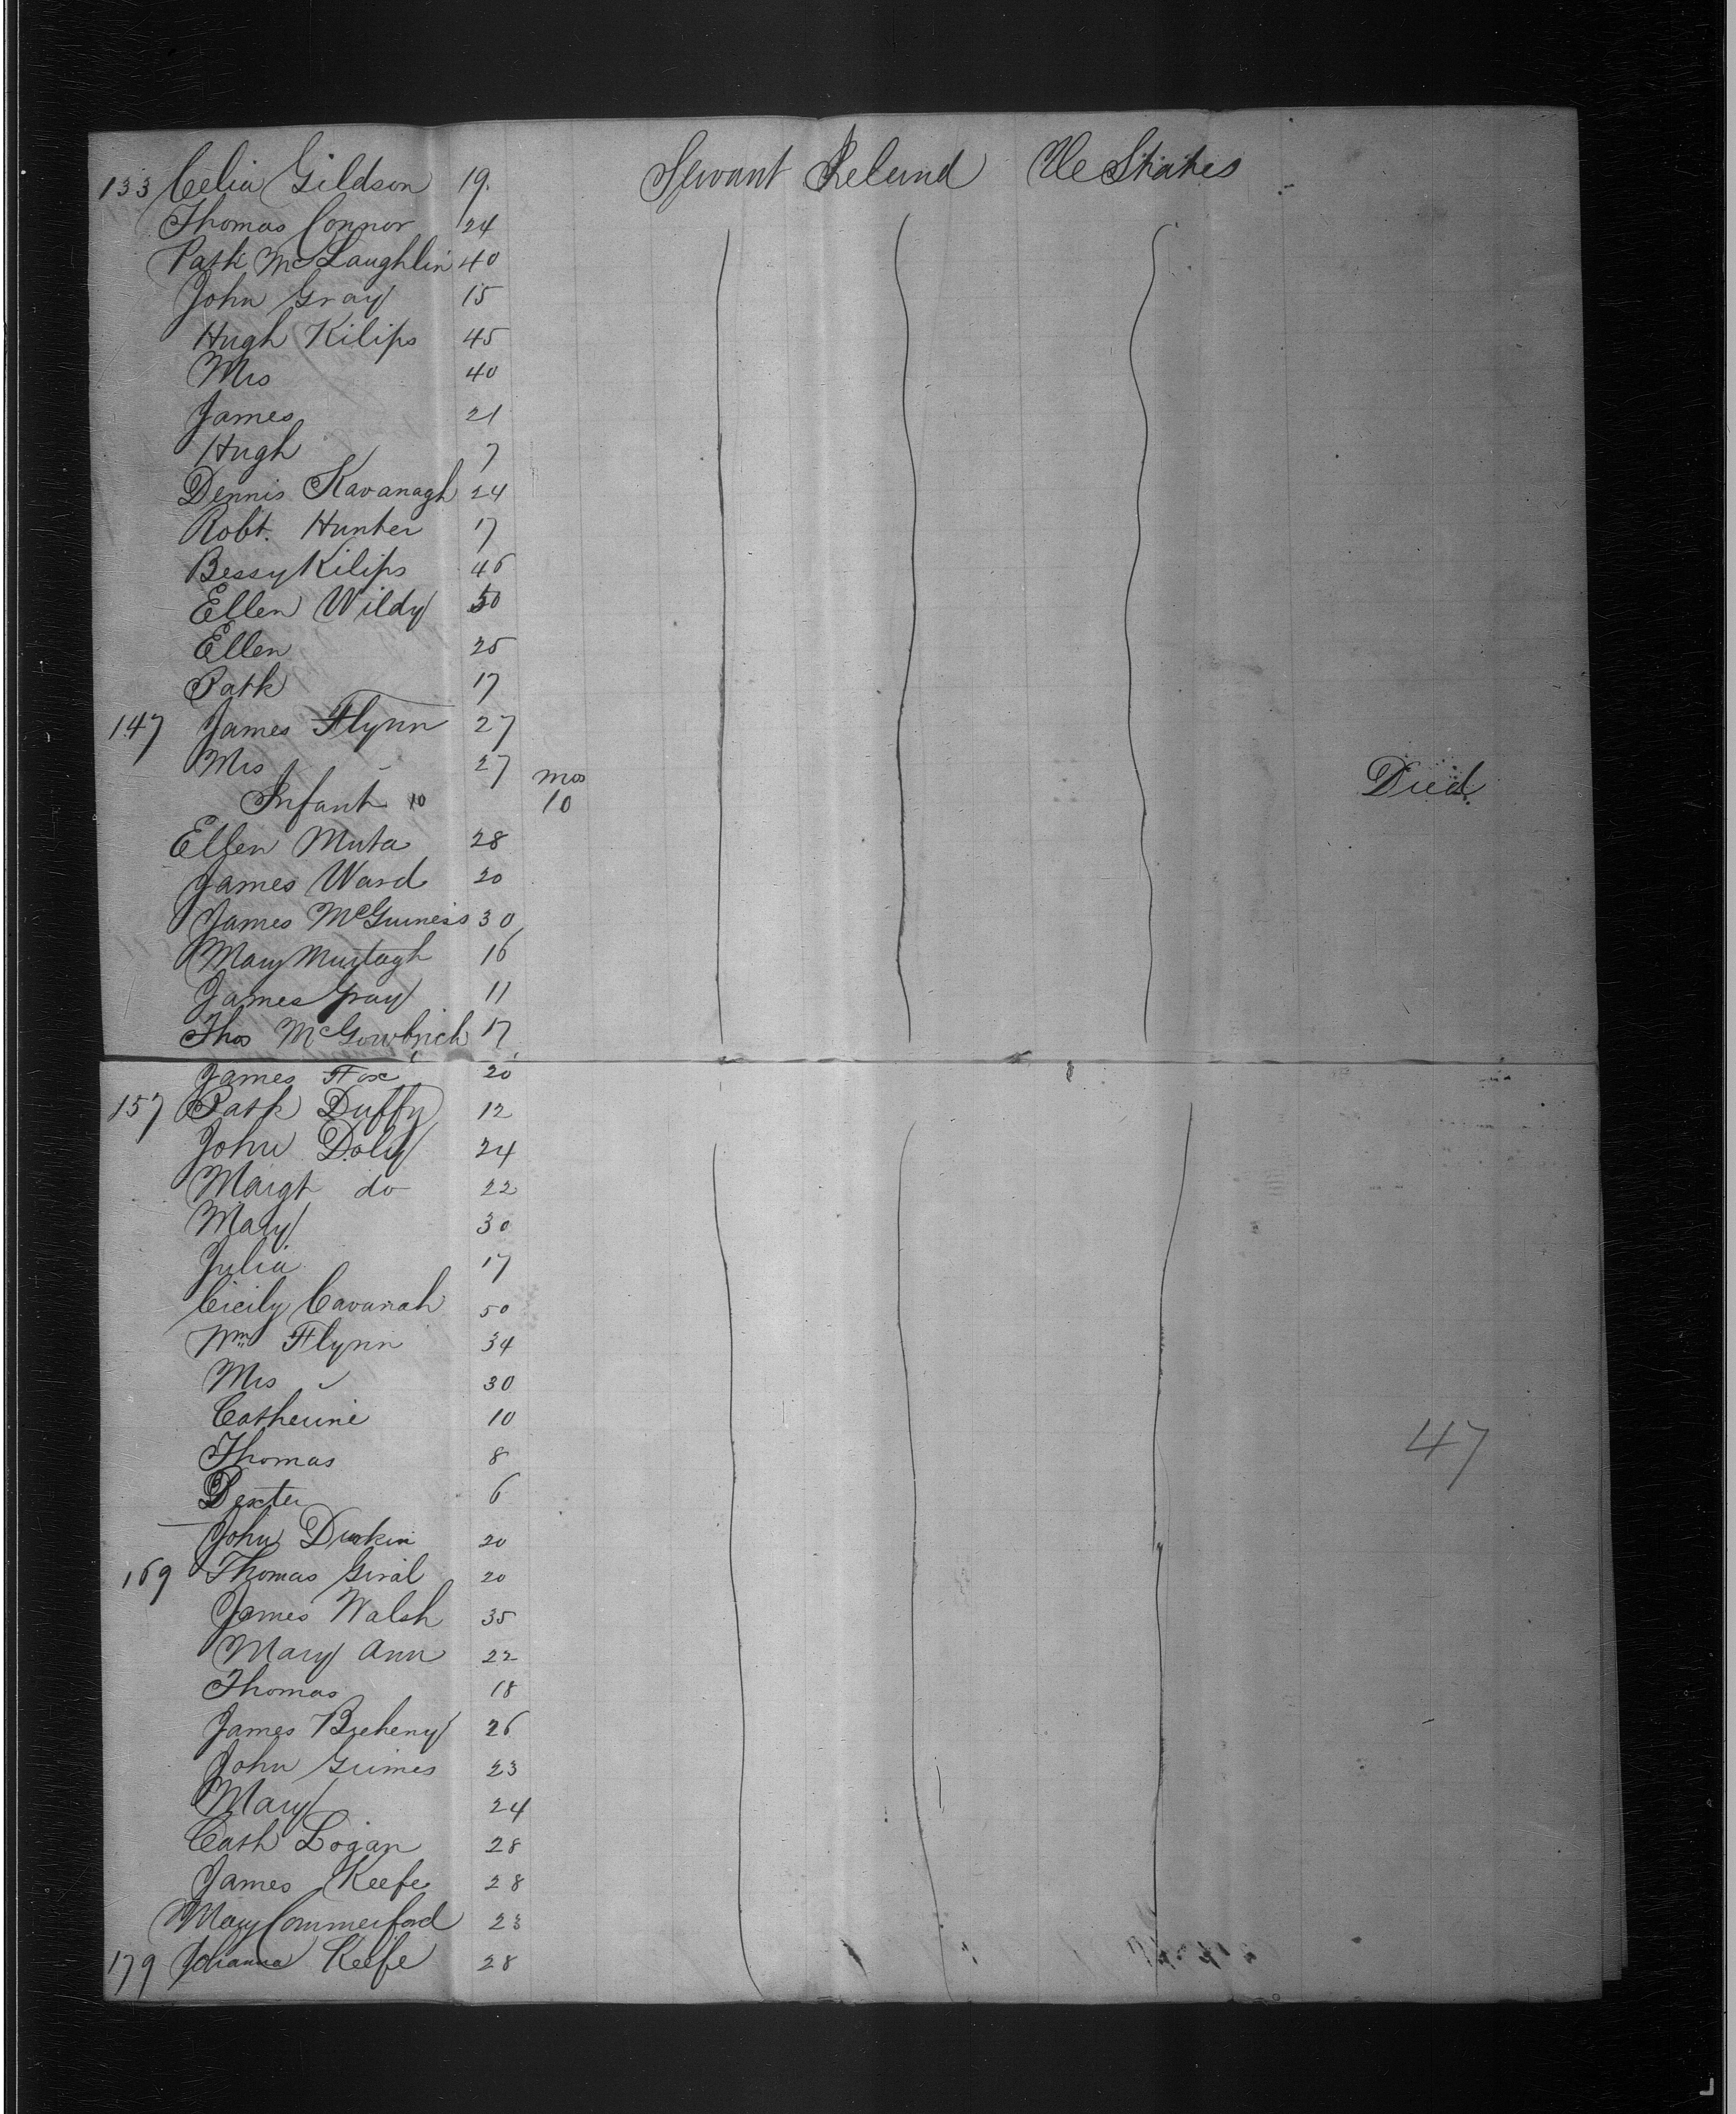 133 Celia Gildson 19. Servant Ireland Ue States
Thomas Connor 24
Patk McLaughlin 40
John Gray 15
Hugh Kilips 45
Mrs 40
James 21
Hugh 7
Dennis Kavanagh 24
Robt. Hunter 17
Bessy Kilips 46
Ellen Wildy 50
Ellen 25
Patk 17
147 James Flynn 27
Mrs 27 mos
Infant 10 10 Died
Ellen Muta 28
James Ward 20
James McGuiness 30
Mary Murtagh 16
James Gray 11
Thos 17
James Fox 20
157 Patk Duffy 12
John Doly 24
Margt do 22
Mary 30
Julia 17
Cicily Cavanah 50
Wm Flynn 34
Mrs 30
Catherine 10
47
Thomas 8
Dexter 6
John Durkin 20
169 Thomas Giral 20
James Walsh 35
Mary Ann 22
Thomas 18
James Breheny 26
John Grimes 23
Mary 24
Cath Logan 28
James Keefe 28
Mary Commerford 23
179 Johanna Keefe 28